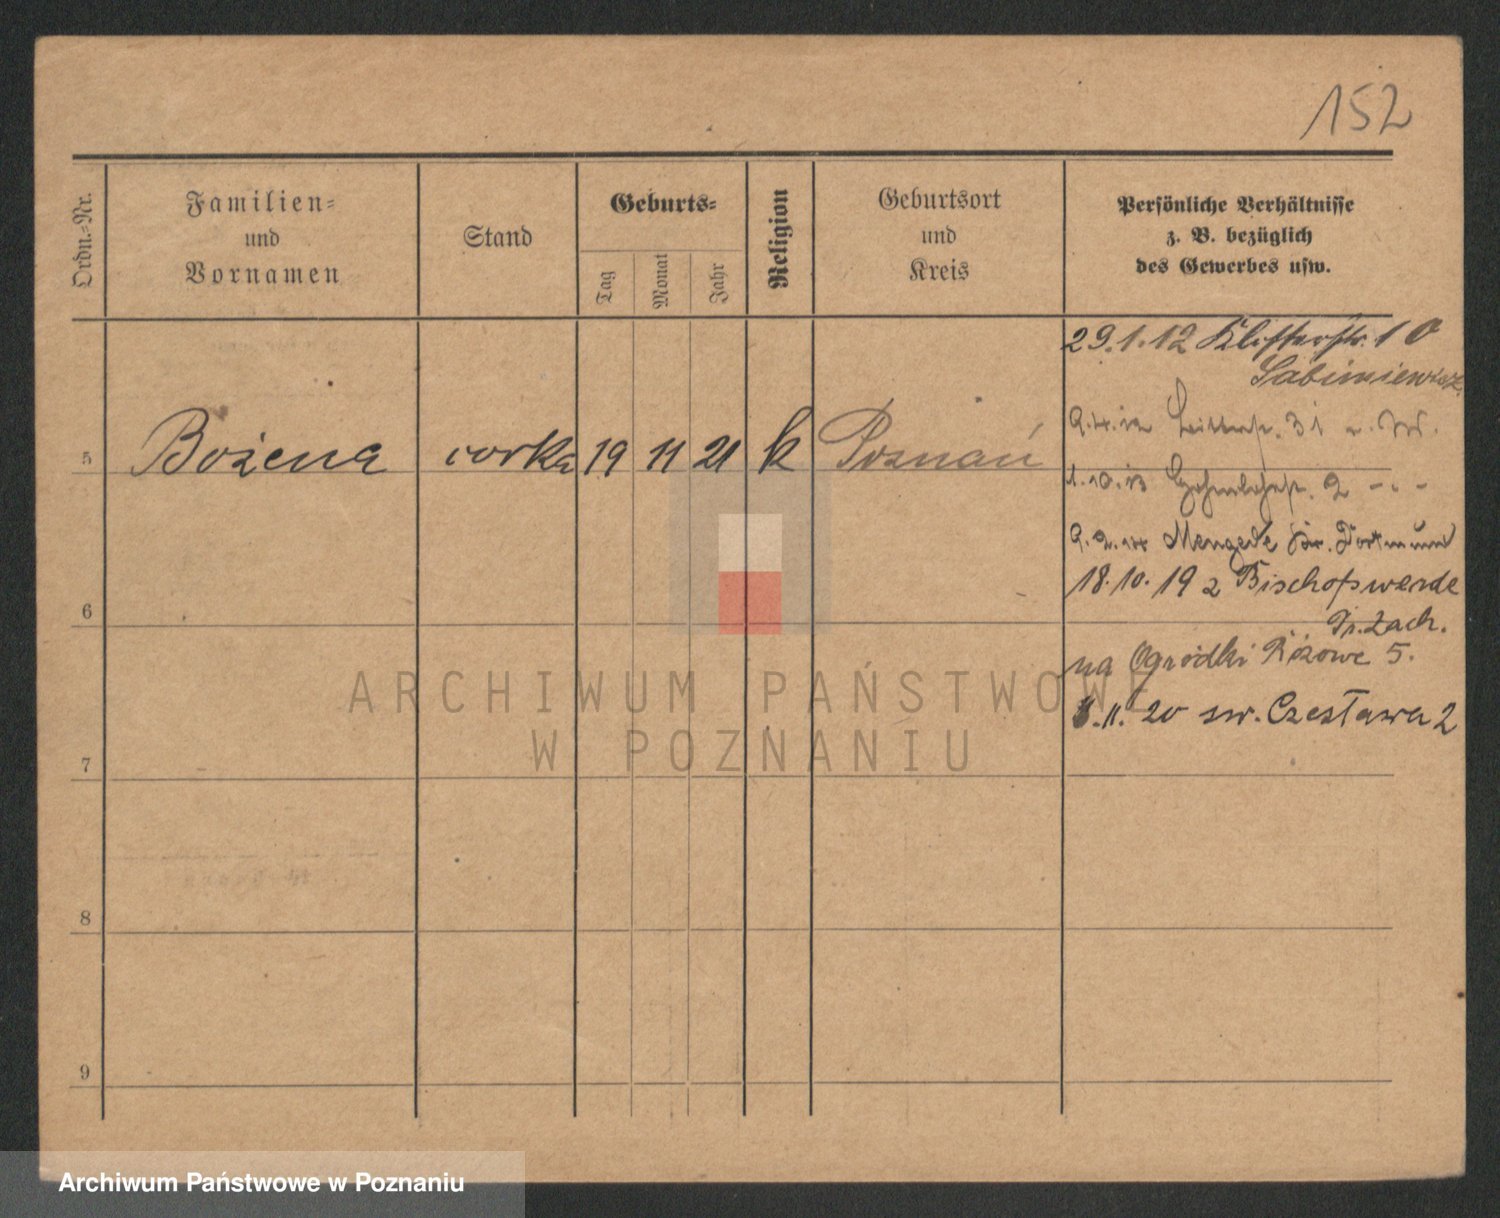 152
Ordn.-Nr.
Familien-
und
Vornamen
Stand
Geburts-
Tag
Monat
Jahr
Religion
Geburtsort
und
Kreis
Persönliche Verhältnisse
z. B. bezüglich
des Gewerbes usw.
29.1.12 Klosterstr. 10
5 Bożena corka 19 11 21 k Poznań
9.4.12 31
1.10.13 2
9.2.14 Mengede Kr. Dortmund
18.10.19 z Bischofswerde
6
Pr. Zach.
na Ogródki Różowe 5.
8.11.20 św. Czesława 2
7
8
9
ARCHIWUM PAŃSTWOWE
W POZNANIU
Archiwum Państwowe w Poznaniu